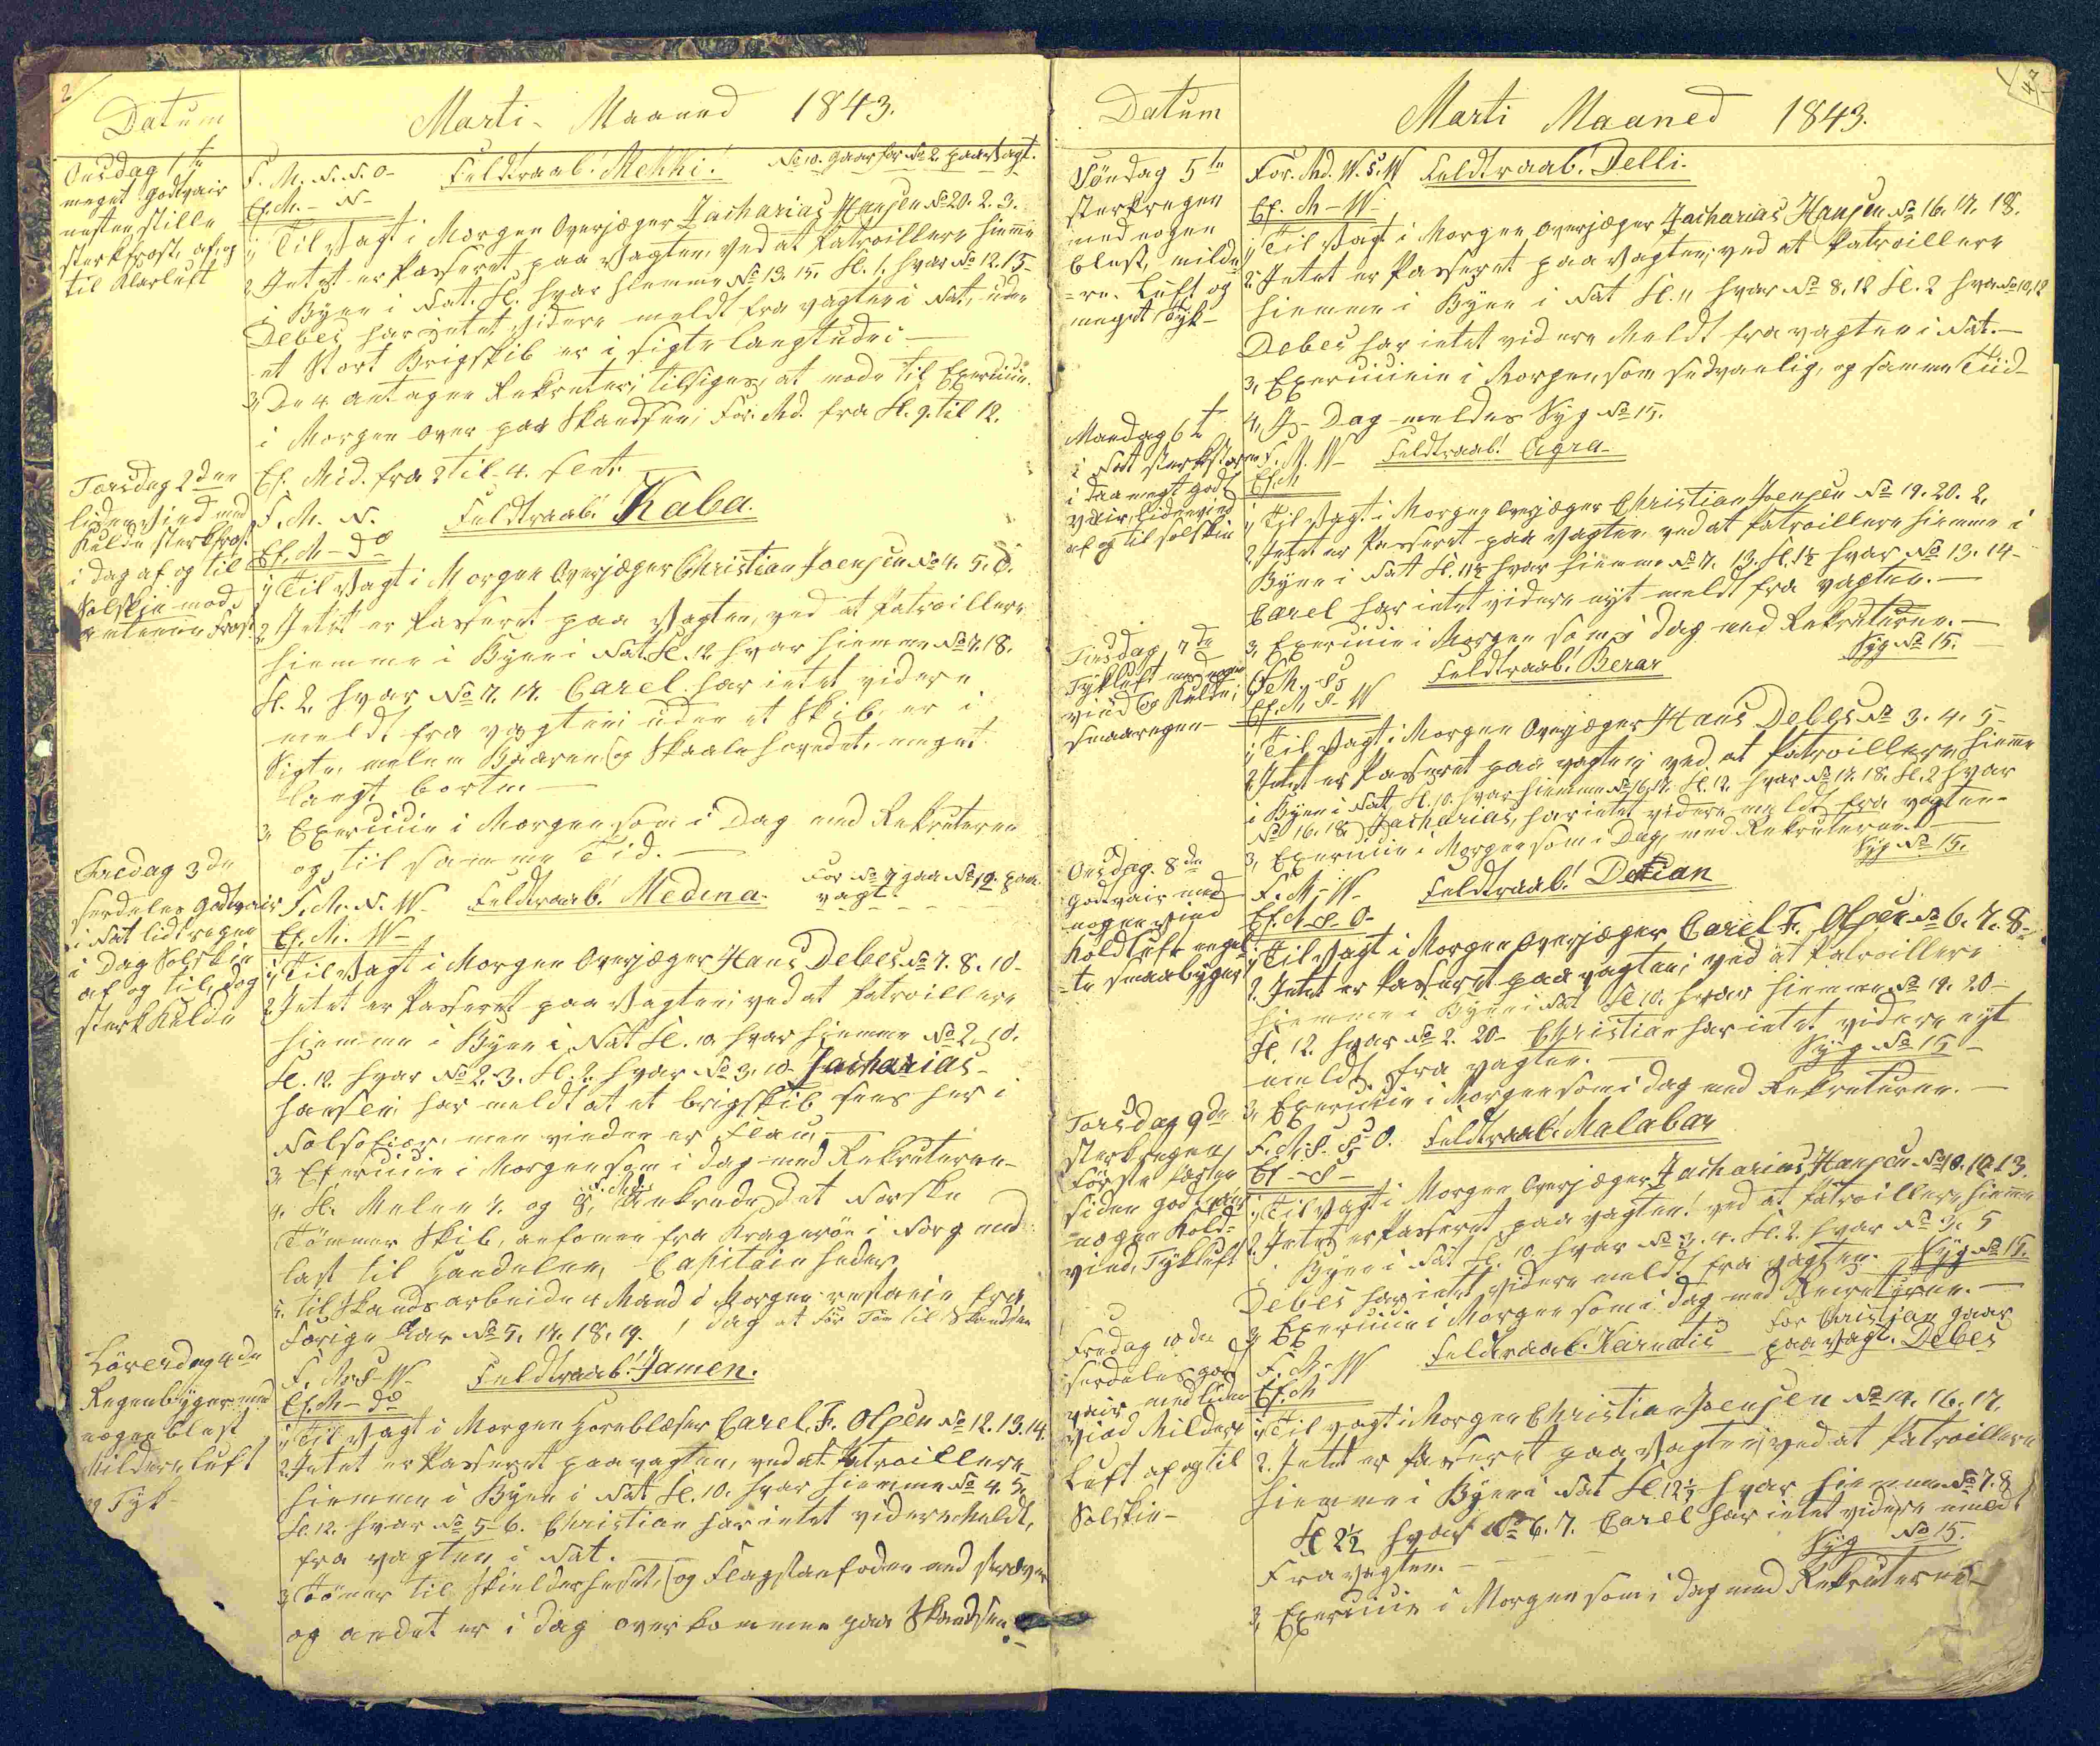 2
Datum
Marti- Maaned 1843.
Onsdag 1te
meget godtvair
nesten stille
sterkfrost, af og
til Klarluft
F. M. N. N. O- Feldtraab! Mekki! No 10. gaar for No 2. paa vagt.
Ef. M. - N-
1, Til Vagt i Morgen Overjæger Zacharias Hansen No 20. 2. 3.
2, Intet er Passeret paa Vagten, ved at Patroillere hiemme
i Byen i Nat. Kl. hvar hiemme No 13. 15. Kl. 1. hvar No 12. 13-
Debes har intet videre meldt fra vagten i Nat, uden
et Stort Brigskib er i sigte langtude:
3, De 4 antagne Rekruter, tilsiges, at møde til Exercicie
i Morgen over paa Skandsen, For. Md. fra Kl. 9. til 12.
Ef. Mid. fra 2 til 4. Slet.
Torsdag 2den
liden Vind med
Kulde sterkfrost
i dag af og til
Solskin mod
aftenen Frost
F. M. N. Feldtraab! Kaba.
Ef. M - do
1, Til Vagt i Morgen Overjæger Christian Joensen No 4. 5. 6.
2, Intet er Passeret paa Vagten, ved at Patroillere
hiemme i Byen i Nat Kl. 12 hvar hiemme No 7. 18.
Kl. 2. hvar No 7. 17. Carel har intet videre
meldt fra vagten uden et Skib er i
Sigte, melem Baaren og Skaalehovedet, meget
langt borte.
3, Exercicie i Morgen som i Dag med Rekruterne
og til samme Tid.
Fredag 3de
serdeles godtvair
i Nat lidt regn
i Dag Solskin
af og til, dog
sterk Kulde
F. M. N. W- Feldtraab! Medina. For No 9 gaar No 19. paa
vagt.
Ef. M. W-
1, Til Vagt i Morgen Overjæger Hans Debes No 7. 8. 10-
2, Intet er Passeret paa Vagten; ved at Patroillere
hiemme i Byen i Nat Kl. 10 hvar hiemme No 2. 10.
Kl. 12. hvar No 2. 3. Kl. 2. hvar No 3. 10. Zacharias-
Hansen har meldt at et brigskib sees her i
Nolsøfiør. men vinden er flau.
3, Exercicie i Morgen som i dag med Rekruterne-
4. Kl. Melem 7. og 8, F. Md. Ankrede det Norske
Tømmer Skib, ankomen fra Kragerøe i Norg med
last til Handelen, Capitain heder
5. Til Skandsarbeide 4 Mand i Morgen restanse fra
Forige Aar No 5. 17. 18. 19. i dag at før Tøm til Skandsen
Løverdag 4de
Regenbyger med
nogen blest
Mildere luft
og Tyk-
F. M. S- W- Feldtraab! Jamen.
Ef. M - do
1, Til Vagt i Morgen Hornblæser Carel F. Olsen No 12. 13. 14.
2, Intet er Passeret paa vagten, ved at Patroillere
hiemme i Byen i Nat Kl. 10. hvar hiemme No 4. 5.
Kl. 12. hvar No 5- 6. Christian har intet videre Meldt,
fra vagten i Nat.
3, Tømer til Skielderhuset, og Flagstanfoden med strever
og andet er i dag over kommen paa Skandsen.
Datum
Marti Maaned 1843.
Søndag 5te
sterk regen
med nogen
blest, milde
=re. Luft og
meget Tyk-
For. Md. W. S. W Feldtraab! Delli.
Ef. M - W-
1, Til Vagt i Morgen Overjæger Zacharias Hansen No 16. 17. 18.
2, Intet er Passeret paa Vagten; ved at Patroillere
hiemme i Byen i Nat Kl. 11 hvar No 8. 12 Kl. 2 hvar No 10, 12
Debes har intet videre Meldt fra vagten i Nat.-
3, Exercicie i Morgen, som sedvanlig, og samme Tiid-
4, I- Dag meldes Syg No 15.
Mandag 6te
i Nat sterk storm
i Daa megt godt
vair, liden vind
af og til solskin
F. M. W- Feldtraab! Agra-
Ef. M
1, Til Vagt i Morgen Overjæger Christian Joensen No 19. 20. 2.
2, Intet er Passeret paa Vagten ved at Patroillere hiemme i
Byen i Nat Kl. 11½ hvar hiemme No 7. 13. Kl. 1½ hvar No 13. 14-
Carel har intet videre nyt meldt fra vagten.-
3, Exercicie i Morgen som i dag med Rekruterne.-
Syg No 15.
Tirsdag 7de
Tykluft med nogen
vind og Kulde;
smaaregen-
F. M. S Feldtraab! Berar
Ef. M S- W
1, Til Vagt i Morgen Overjæger Hans Debes No 3. 4. 5-
2, Intet er Passeret paa vagten; ved at Patroillere hiemme
i Byen i Nat Kl. 10. hvar hiemme No 16. 17. Kl. 12. hvar No 17. 18. Kl. 2 hvar
No 16. 18. Zacharias, har intet videre meldt fra vagten-
3, Exercicie i Morgen som i Dag, med Rekruterne.
Syg No 15.
Onsdag. 8de
godtvair med
nogen vind
Koldluft enkel
=te smaabyger
F. M - W- Feldtraab! Dekian
Ef. M S- O-
1, Til Vagt i Morgen Overjæger Carel F. Olsen No 6. 7. 8-
2. Intet er Passeret paa vagten; ved at Patroillere
hiemme i Byen i Nat Kl. 10. hvar hiemme No 19. 20-
Kl. 12. hvar No 2. 20- Christian har intet videre nyt
meldt fra vagten. Syg No 15-
3, Exercicie i Morgen som i dag med Rekruterne.-
Torsdag 9de
sterk regen,
første vagten
siden godtvair
nogen Kold=
vind, Tykluft
F. M. S. S- O. Feldtraab! Malabar
Ef - S-
1, Til Vagt i Morgen Overjæger Zacharias Hansen No 10. 12. 13.
2. Intet er Passeret paa vagten! ved at Patroillere hiemme
i Byen i Nat Kl. 10. hvar No 3. 4. Kl. 2. hvar No 3. 5
Debes har intet videre meldt fra vagten. Syg No 15.
3, Exercicie i Morgen som i dag med Recruterne.-
Fredag 10de
serdeles god
vair med liden
vind Mildere
Luft af og til
Solskin-
F. M - W Feldtraab! Karnatic for Christian gaar
paa vagt. Debes
Ef. M
1, Til vagt i Morgen Christian Joensen No 14. 16. 17.
2. Intet er Passeret paa Vagten; ved at Patroillere
hiemme i Byen i Nat Kl. 12½ hvar hiemme No 7. 8
Kl 2½ hvar No 6. 7. Carel har intet videre meldt
Fra vagten. Syg No 15.
3, Exercicie i Morgen som i dag med Rekruterne-